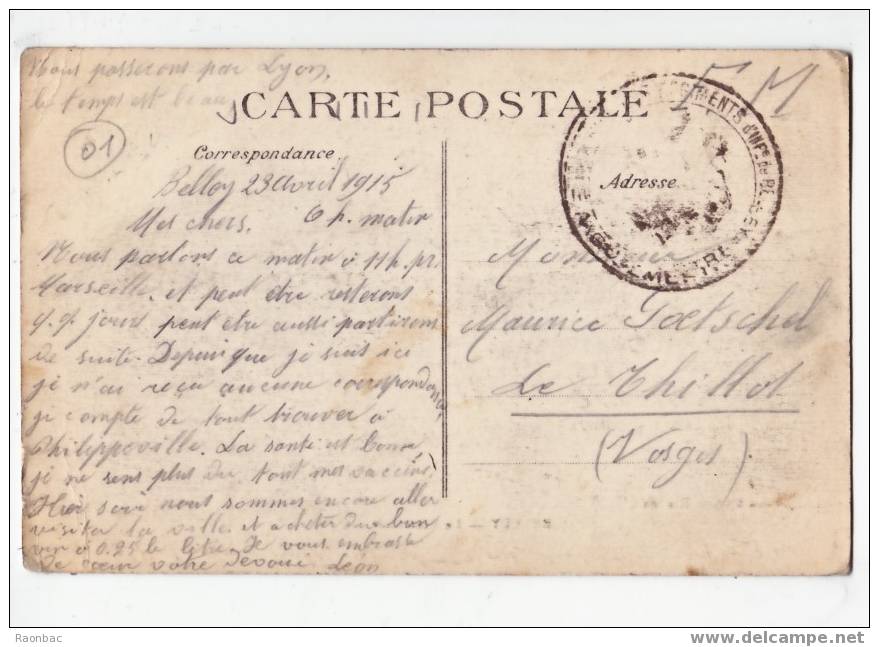 Nous passerons par Lyon,
le temps est beau
CARTE POSTALE
F M
01
Correspondance.
Adresse
Belley 23 avril 1915
Mes chers. 6 h. matin
Nous partons ce matin à 11h. pr.
Marseille. et peut être resterons
q.q. jours peut etre aussi partirons
de suite. Depuis que je suis ici
je n'ai reçu aucune correspondance,
je compte de tout trouver à
Philippeville. La santé est bonne
je ne sens plus du tout mes vaccins.
Hier soir nous sommes encore aller
visiter la ville et acheter du bon
vin à 0.25 le litre. Je vous embrasse
de cœur votre devoué Léon
Monsieur
Maurice Goetschel
Le Thillot
(Vosges)
REGIMENTS d'INF. DE
Raonbac
www.delcampe.net